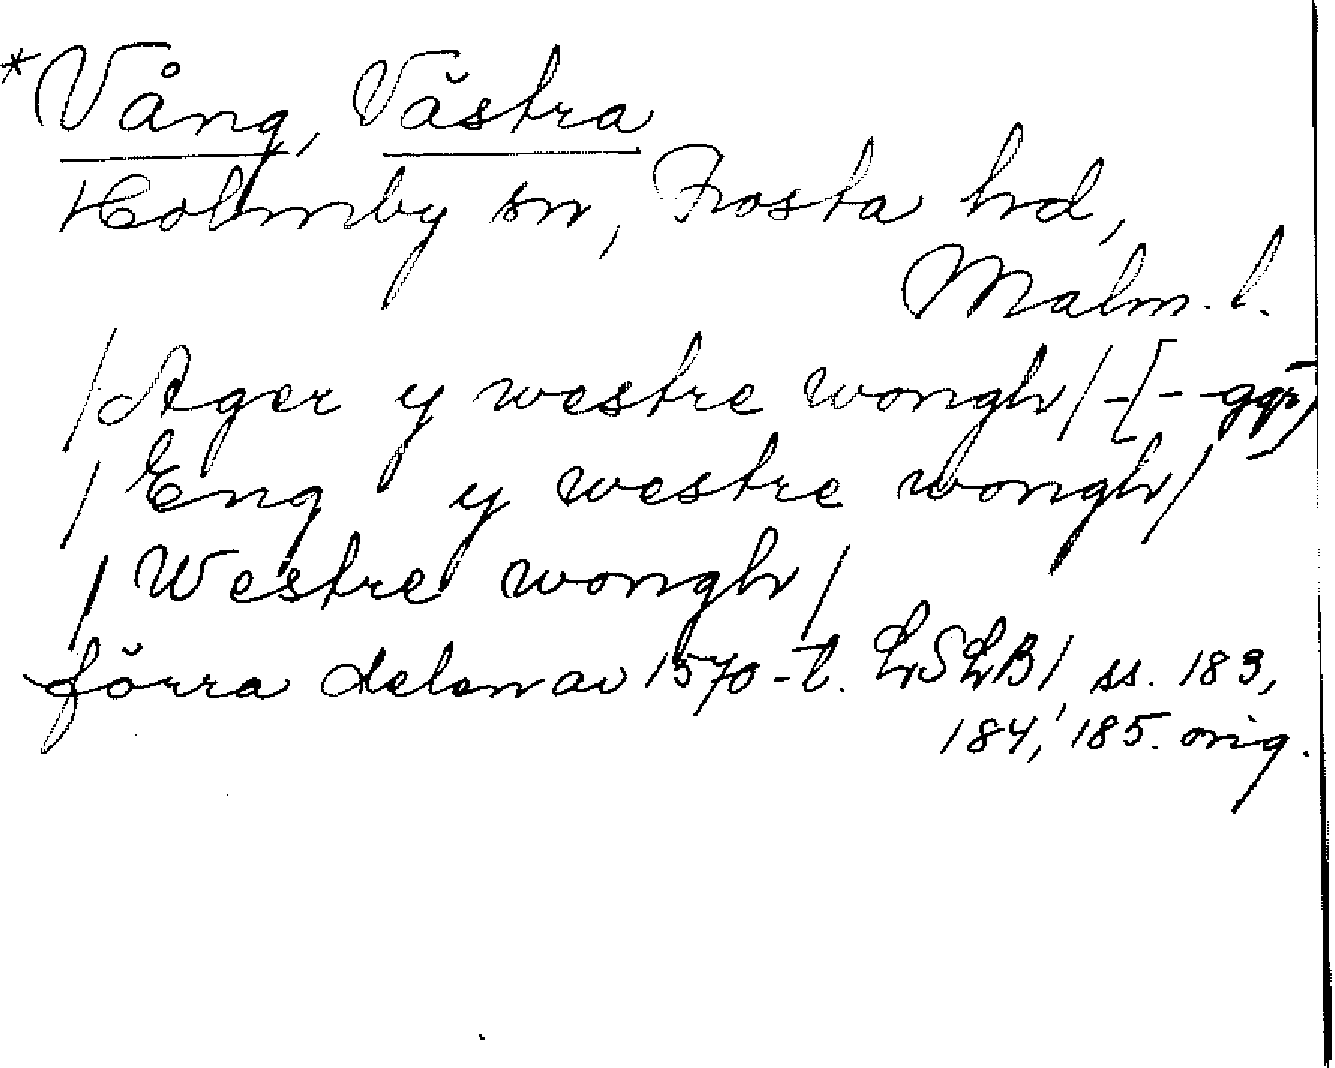 *Vång, Västra
Holmby sn, Frosta hd,
Malm. l.
/Ager y westre wongh/ -[--ggr]
/Eng y westre wongh/
/Westre wongh/
förra delen av 1570-t. LSLB1 ss. 183,
184, 185. orig.